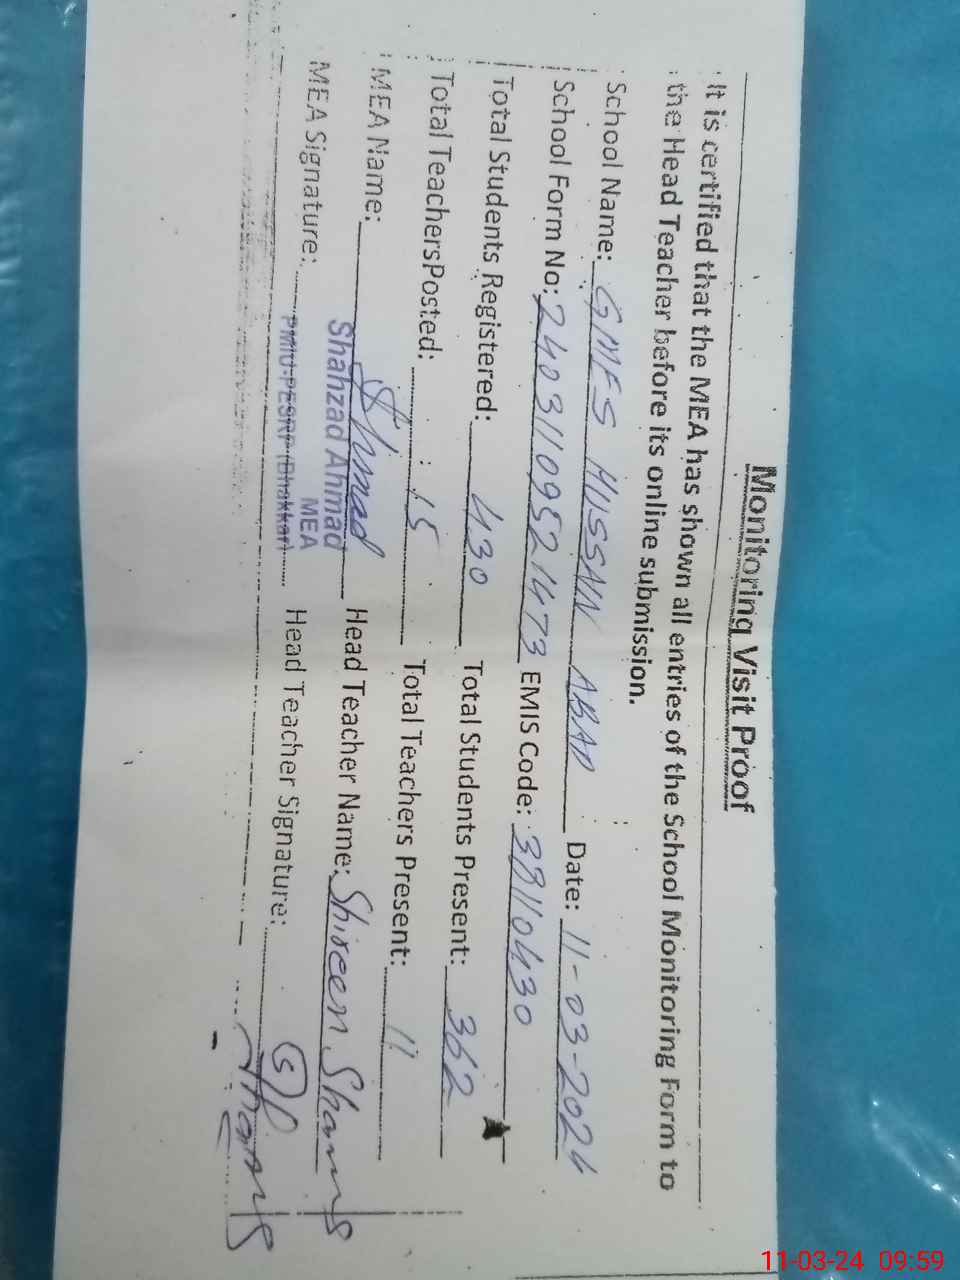 Monitoring Visit Proof
It is certified that the MEA has shown all entries of the School Monitoring Form to
the Head Teacher before its online submission.
School Name: GMES HUSSAIN ABAD Date: 11-03-2024
School Form No: 24031109521473 EMIS Code: 38110430
Total Students Registered: 430 Total Students Present: 362
Total TeachersPosted: 15 Total Teachers Present: 11
MEA Name: Ahmad Head Teacher Name: Shireen Shams
MEA Signature: Shahzad Ahmad Head Teacher Signature:
MEA
PMIU-PESRP (Bhakkar)
11-03-24 09:59